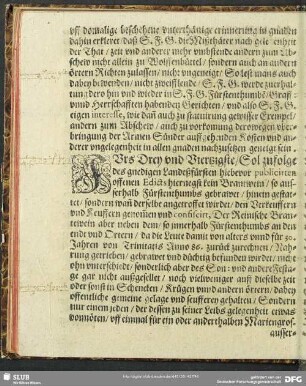 vff domalige beschehene vnterthänige erinnerung in gnaden
dahin erkleret / daß S. F. G. die Mißthäter nach gelegenheit
der That / zeit vnd anderer mehr vmbstende andern zum Ab-
schew nicht allein zu Wolffenbüttel / sondern auch an andern
örtern Richten zulassen / nicht vngeneiget / So lest mans auch
dabey bewenden / nicht zweiffelnde / S. F. G. werde zuerhal-
tung dero hin vnd wieder in S. F. G. Fürstenthumbs / Graff-
vnnd Herrschafften habenden Gerichten / vnd also S. F. G.
eigen interesse, wie dan auch zu statuirung gewisser Exempel /
andern zum Abschew / auch zu vorkommung derowegen ober-
bringung der Armen Sünder auffgehenden Kosten vnd an-
derer vngelegenheit in allen gnaden nachzusetzen geneigt sein.
FVrs Drey vnd Viertzigste, Sol zufolge
des gnedigen Landeßfürsten hiebevor publicirten
offenen Edicts hernegst kein Branwein / so aus-
serhalb Fürstenthumbs gebrawet / hinein gestat-
tet / sondern wan derselbe angetroffen würdet / den Verkeuffern
vnd Keuffern genommen vnd confiscirt, Der Reinische Bran-
tewein aber neben dem / so innerhalb Fürstenthumbs an den
enden vnd Ortern / da die Leute damit von alters vnnd für 30.
Jahren von Trinitatis Anno 86. zurück zurechnen / Nah-
rung getrieben / gebrawet vnd düchtig befunden würdet / nich
ohn vnterschiedt / sonderlich aber des Son- vnd anderer Festta-
ge gar nicht außgesellet / noch vielweiniger auff dieselbe zeit
oder sonst in Schencken / Krügen vnd andern örtern / dabey
offentliche gemeine gelage vnd seufferey gehalten / Sondern
nur einem jeden / der dessen zu seiner Leibs gelegenheit etwas
vonnöten / vff einmal für ein oder anderthalben Mariengros.
ausser-
DFG